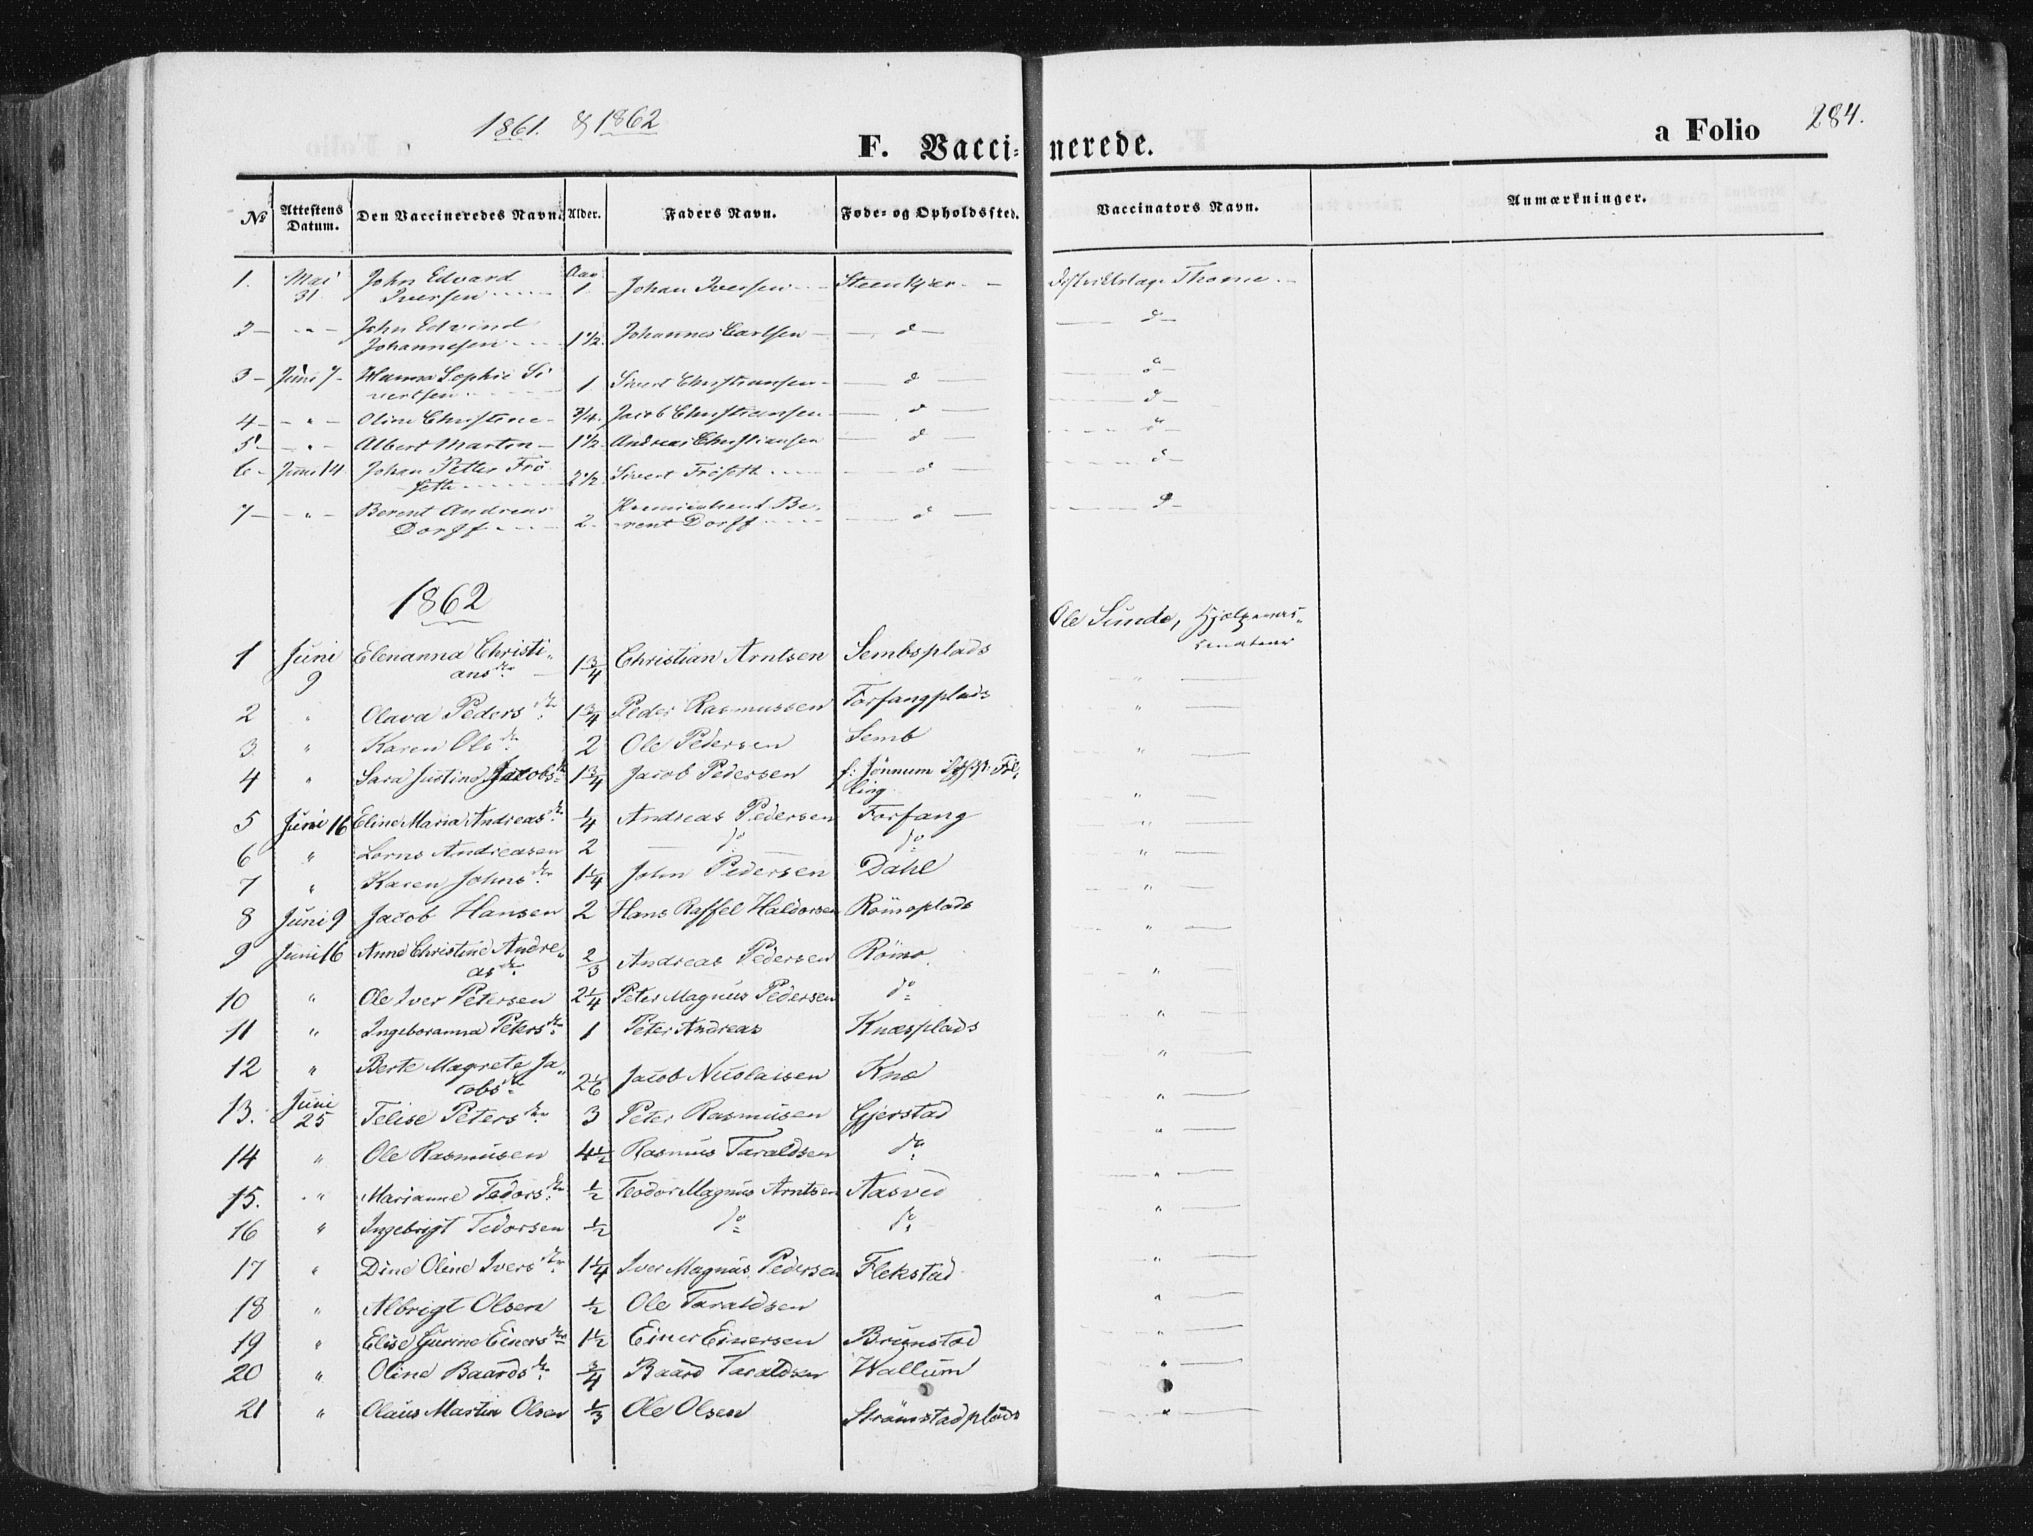 1861. & 1862
F. Vaccinerede.
a Folio 284.
No Attestens Datum. Den Vaccineredes Navn. Alder. Faders Navn. Føde- og Opholdssted. Vaccinators Navn. Anmærkninger.
1. Mai 31. John Edvard Iversen Aar 1. Johan Iversen Steenkjær Thome
2 " John Edvind Johannesen 1 1/2 Johannes Carlsen d
3 Juni 7 Hanna Sophie Sivertsen 1 Sivert Christiansen d
4 " Oline Christine 3/4. Jacob Christiansen d
5 " Albert Martin 1 1/2. Andreas Christiansen d
6 Juni 14 Johan Petter Fröseth 2 1/2. Sivert Fröseth d
7 " Berent Andreas Dorff 2. Berent Dorff d
1862
Ole Sunde, Hjælpevac-
1 Juni 9 Elenanna Christiansdtr 1 3/4 Christian Arntsen Sembsplads
2 " Olava Pedersdtr 1 3/4 Peder Rasmussen Forfangplads
3 " Karen Olsdtr 2 Ole Pedersen Semb
4 " Sara Justine Jacobsdtr 1 3/4 Jacob Pedersen f: Jönnum
5 Juni 16 Eline Maria Andreasdtr 1/4 Andreas Pedersen Forfang
6 " Lorns Andreasen 2 do do
7 " Karen Johnsdtr 1 1/4 John Pedersen Dahl
8 Juni 9 Jacob Hansen 2 Hans Raffel Haldorsen Römoplads
9 Juni 16 Anne Christine Andreasdtr 2/3 Andreas Pedersen Römo
10 " Ole Iver Petersen 2 1/4 Peter Magnus Pedersen do
11 " Ingeboranna Petersdtr 1 Peter Andreas Knæsplads
12 " Berte Magrete Jacobsdtr 2 1/6 Jacob Nicolaisen Knæ
13. Juni 25 Telise Petersdtr 3 Peter Rasmusen Gjerstad
14 " Ole Rasmusen 4 1/2 Rasmus Taraldsen do
15. " Marianne Tedorsdtr 1/2 Teodor Magnus Arntsen Aasved
16 " Ingebrigt Tedorsen 1/2 do do
17 " Dine Oline Iversdtr 1 1/4 Iver Magnus Pedersen Flekstad
18 " Albrigt Olsen 1/2 Ole Taraldsen
19 " Elise Gurine Einersdtr 1 1/2 Einer Einersen Brunstad
20 " Oline Baardsdtr 3/4 Baard Taraldsen Wallum
21 " Olaus Martin Olsen 1/3 Ole Olsen Strömstadplads